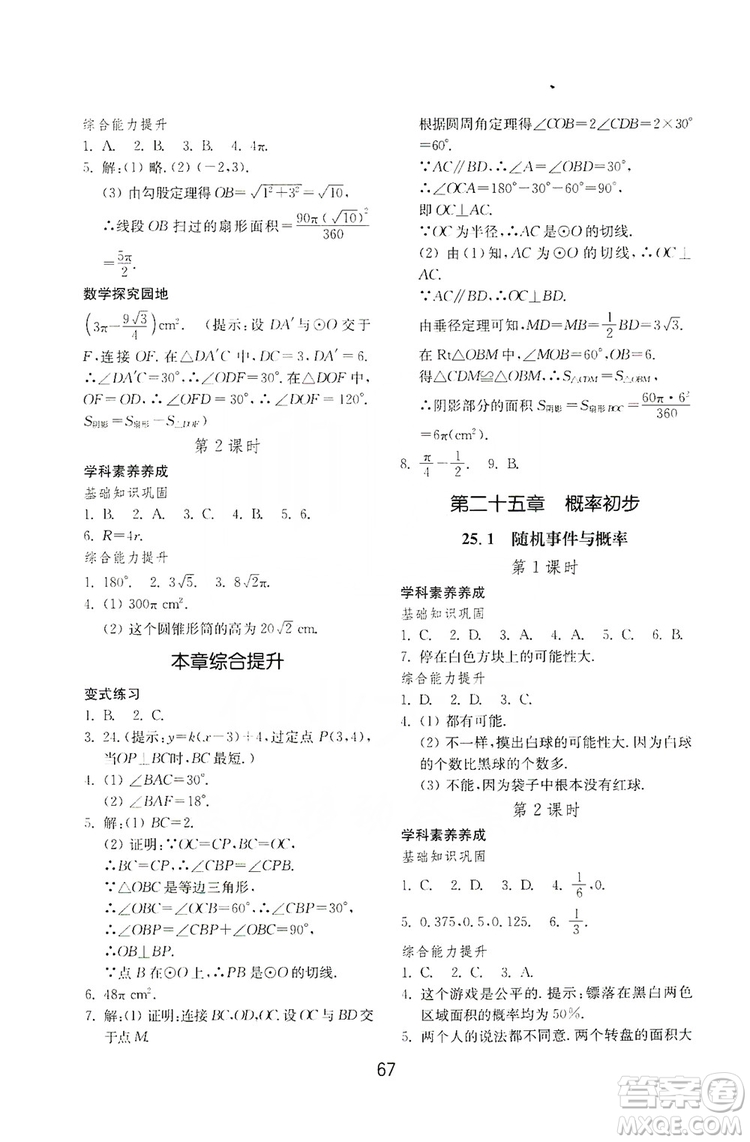 综合能力提升
1. A.  2. B.  3. B.  4. 4π.
5. 解:(1) 略. (2) (-2,3).
(3) 由勾股定理得 OB=√(1²+3²)=√10,
∴线段 OB 扫过的扇形面积=90π(√10)²/360
=5π/2.
数学探究园地
(3π-9√3/4)cm². (提示:设 DA′与⊙O 交于
F,连接 OF. 在△DA′C 中,DC=3,DA′=6.
∴∠DA′C=30°,∴∠ODF=30°. 在△DOF 中,
OF=OD,∴∠OFD=30°,∴∠DOF=120°.
S阴影=S扇形-S△DOF)
第 2 课时
学科素养养成
基础知识巩固
1. B.  2. C.  3. D.  4. B.  5. 6.
6. R=4r.
综合能力提升
1. 180°.  2. 3√5.  3. 8√2π.
4. (1) 300π cm².
(2) 这个圆锥形筒的高为 20√2 cm.
本章综合提升
变式练习
1. B.  2. C.
3. 24. (提示:y=k(x-3)+4,过定点 P(3,4),
当OP⊥BC时,BC 最短.)
4. (1) ∠BAC=30°.
(2) ∠BAF=18°.
5. 解:(1) BC=2.
(2) 证明:∵OC=CP,BC=OC,
∴BC=CP,∴∠CBP=∠CPB.
∵△OBC 是等边三角形,
∴∠OBC=∠OCB=60°,∴∠CBP=30°,
∴∠OBP=∠CBP+∠OBC=90°,
∴OB⊥BP.
∵点 B 在⊙O 上,∴PB 是⊙O 的切线.
6. 48π cm².
7. 解:(1) 证明:连接 BC,OD,OC. 设 OC 与 BD 交
于点 M.
根据圆周角定理得∠COB=2∠CDB=2×30°
=60°.
∵AC∥BD,∴∠CAO=∠DBO=30°,
∴∠OCA=180°-30°-60°=90°,
即 OC⊥AC.
∵OC 为半径,∴AC 是⊙O 的切线.
(2) 由(1)知,AC 为⊙O 的切线,∴OC⊥
AC.
∵AC∥BD,∴OC⊥BD.
由垂径定理可知,MD=MB=1/2BD=3√3.
在 Rt△OBM 中,∠COB=60°,OB=6.
得△CDM≌△OBM,∴S△CDM=S△OBM.
∴阴影部分的面积 S阴影=S扇形BOC=60π·6²/360
=6π(cm²).
8. π/4-1/2.  9. B.
第二十五章 概率初步
25.1 随机事件与概率
第 1 课时
学科素养养成
基础知识巩固
1. C.  2. D.  3. D.  4. D.  5. C.  6. B.
7. 停在白色方块上的可能性大.
综合能力提升
1. D.  2. D.  3. C.
4. (1) 都有可能.
(2) 不一样,摸出白球的可能性大,因为白球
的个数比黑球的个数多.
(3) 不能,因为袋子中根本没有红球.
第 2 课时
学科素养养成
基础知识巩固
1. C.  2. C.  3. A.  4. 1/6,0.
5. 0.375,0.5,0.125.  6. 1/3.
综合能力提升
1. C.  2. C.  3. D.
4. 这个游戏是公平的. 提示:镖落在黑白两色
区域面积的概率均为 50%.
5. 两个人的说法都不同意. 两个转盘的面积大
67
答案圈
MXQE.COM